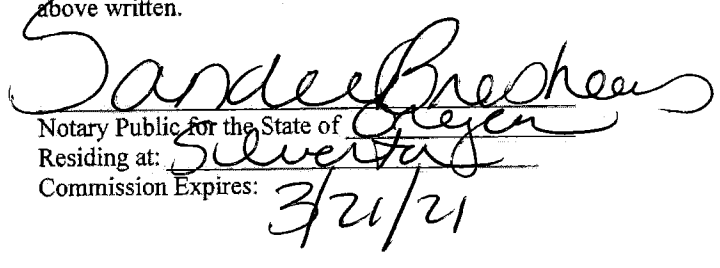 above written.
Sandee Breshears
Notary Public for the State of Oregon
Residing at: Silverton
Commission Expires: 3/21/21